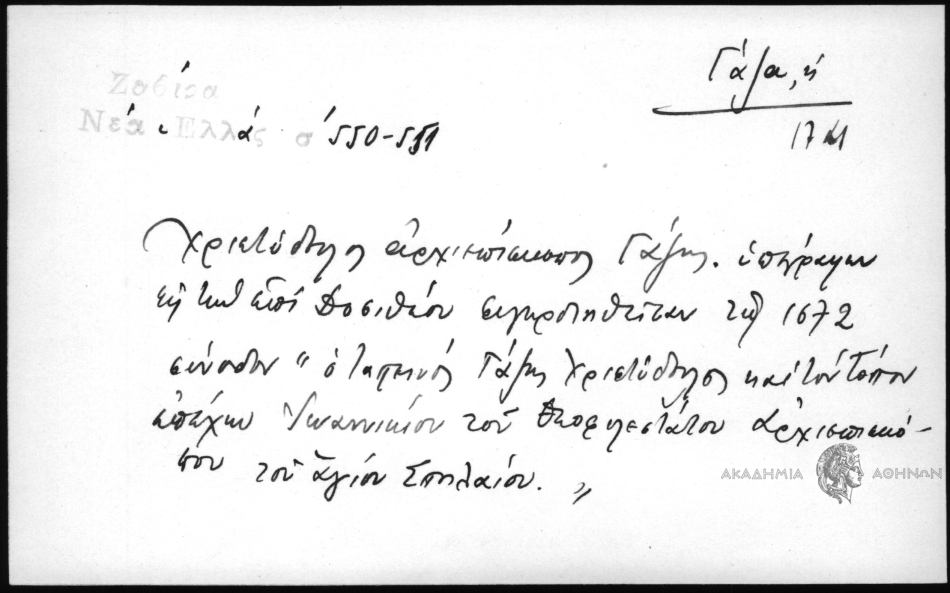 Γάζα, ἡ
Ζαβίρα
Νέα Ἑλλάς σ 550-551
Χριστόδουλος ἀρχιεπίσκοπος Γάζης. ὑπέγραψεν
εἰς τὴν ἐπὶ Δοσιθέου συγκροτηθεῖσαν τῷ 1672
σύνοδον " ὁ ταπεινὸς Γάζης Χριστόδουλος καὶ τὸν τόπον
ἐπέχων Ἰωαννικίου τοῦ θεοφιλεστάτου ἀρχιεπισκό-
που τοῦ ἁγίου Σπηλαίου. "
ΑΚΑΔΗΜΙΑ ΑΘΗΝΩΝ